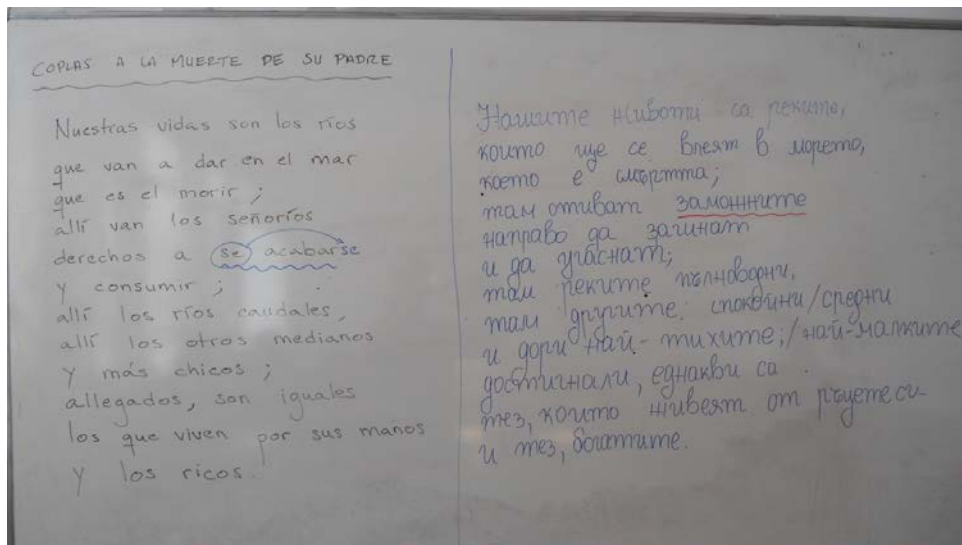 COPLAS A LA MUERTE DE SU PADRE
Nuestras vidas son los ríos
que van a dar en el mar
que es el morir;
allí van los señoríos
derechos a se acabarse
y consumir;
allí los ríos caudales,
allí los otros medianos
y más chicos;
allegados, son iguales
los que viven por sus manos
y los ricos.
Нашите животи са реките,
които ще се влеят в морето,
което е смъртта;
там отиват заможните
направо да загинат
и да угаснат;
там реките пълноводни,
там другите, спокойни/средни
и дори най-тихите;/най-малките
достигнали, еднакви са
тез, които живеят от ръцете си
и тез, богатите.